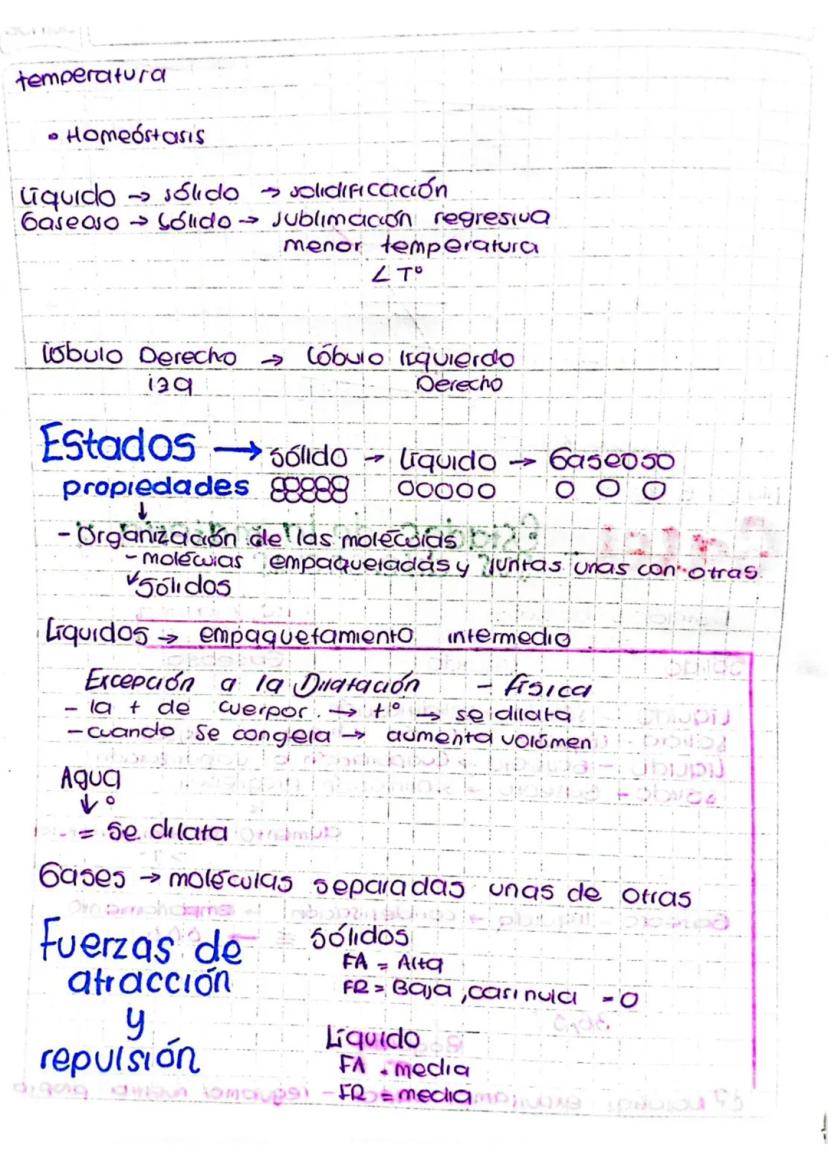 temperatura
• Homeóstasis
Líquido → sólido → solidificación
Gaseoso → sólido → sublimación regresiva
menor temperatura
∠ T°
lóbulo Derecho → lóbulo Izquierdo
izq Derecho
Estados → sólido → Líquido → Gaseoso
propiedades
- Organización de las moléculas
- moléculas empaquetadas y juntas unas con otras
sólidos
Líquidos → empaquetamiento intermedio
Excepción a la Dilatación - física
- la + de cuerpor. → t° → se dilata
- cuando se congela → aumenta volúmen
Agua
↓°
= se dilata
Gases → moléculas separadas unas de otras
Fuerzas de atracción y repulsión
sólidos
FA = Alta
FR = Baja, casi nula = 0
Líquido
FA = media
FR = media